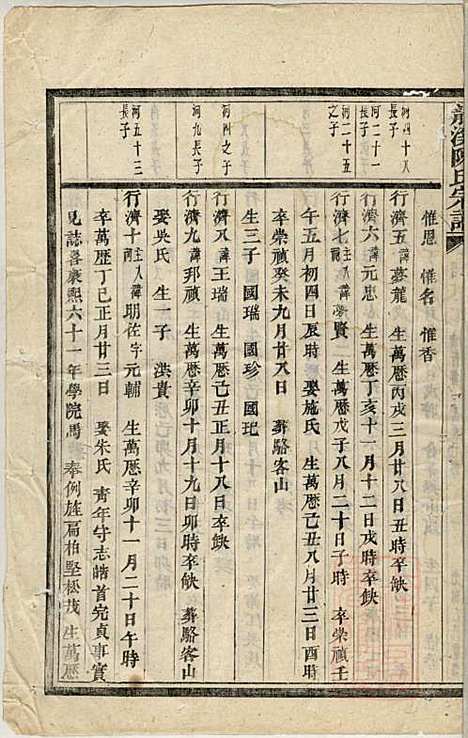 惟恩　惟名　惟香
河四十八長子
行濟五諱夢龍　生萬歷丙戌三月廿八日丑時　卒缺
河二十一長子
行濟六諱元忠　生萬歷丁亥十一月十二日戌時卒缺
河二十五之子
行濟七諱夢賢　生萬歷戊子八月二十日子時　卒崇禎壬
午五月初四日辰時　娶施氏　生萬歷己丑八月廿三日酉時
卒崇禎癸未九月廿八日　葬駱客山
生三子　國瑞　國珍　國玘
河四之子
行濟八諱王瑞　生萬歷己丑正月十八日卒缺
河九長子
行濟九諱邦禎　生萬歷辛卯十月十九日卯時卒缺　葬駱客山
娶吳氏　生一子　洪貴
河五十三長子
行濟十諱明佐字元輔　生萬歷辛卯十一月二十日午時
卒萬歷丁巳正月廿三日　娶朱氏　靑年守志皓首完貞事實
見誌喜康熙六十一年學院馬　奉例旌扁柏堅松茂　生萬歷